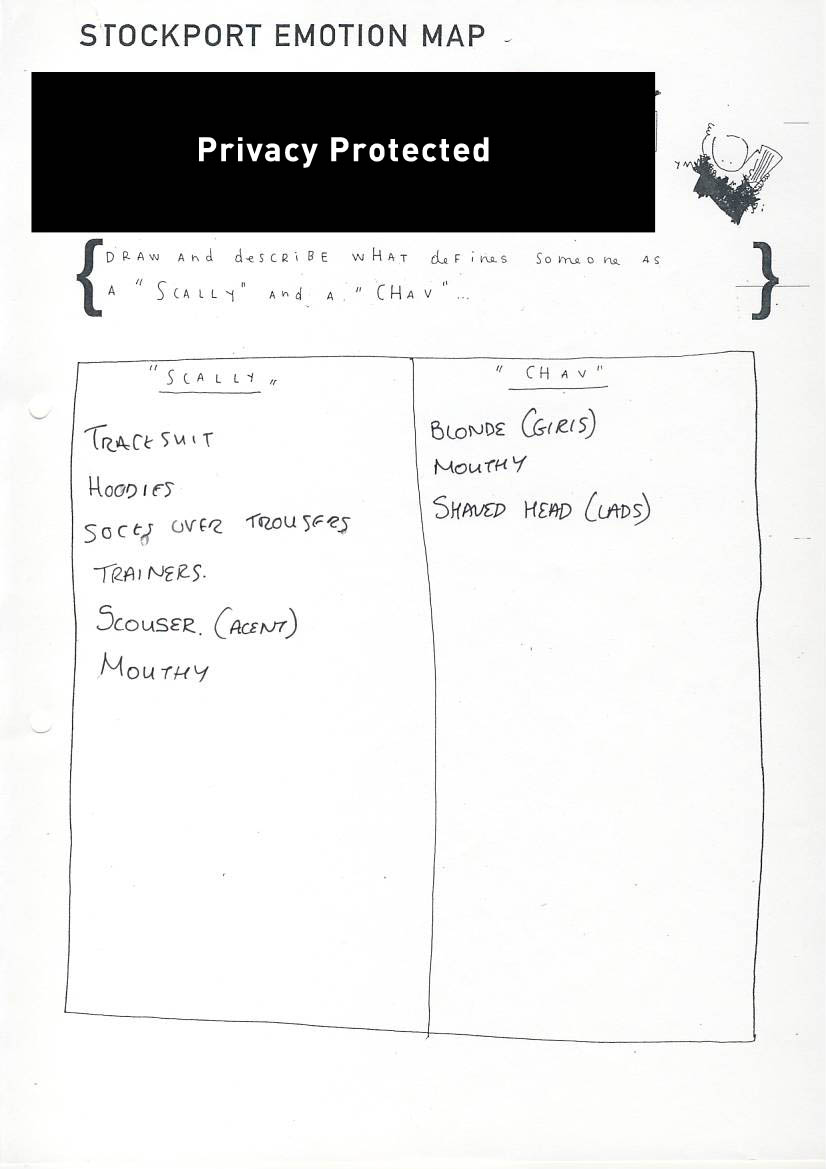 STOCKPORT EMOTION MAP
Privacy Protected
DRAW And descRiBE wHAT deFines Someone AS
A "SCALLY" And A "CHAV"...
"SCALLY"
TRACKSUIT
HOODIES
SOCKS OVER TROUSERS
TRAINERS.
SCOUSER. (ACENT)
MOUTHY
"CHAV"
BLONDE (GIRLS)
MOUTHY
SHAVED HEAD (LADS)